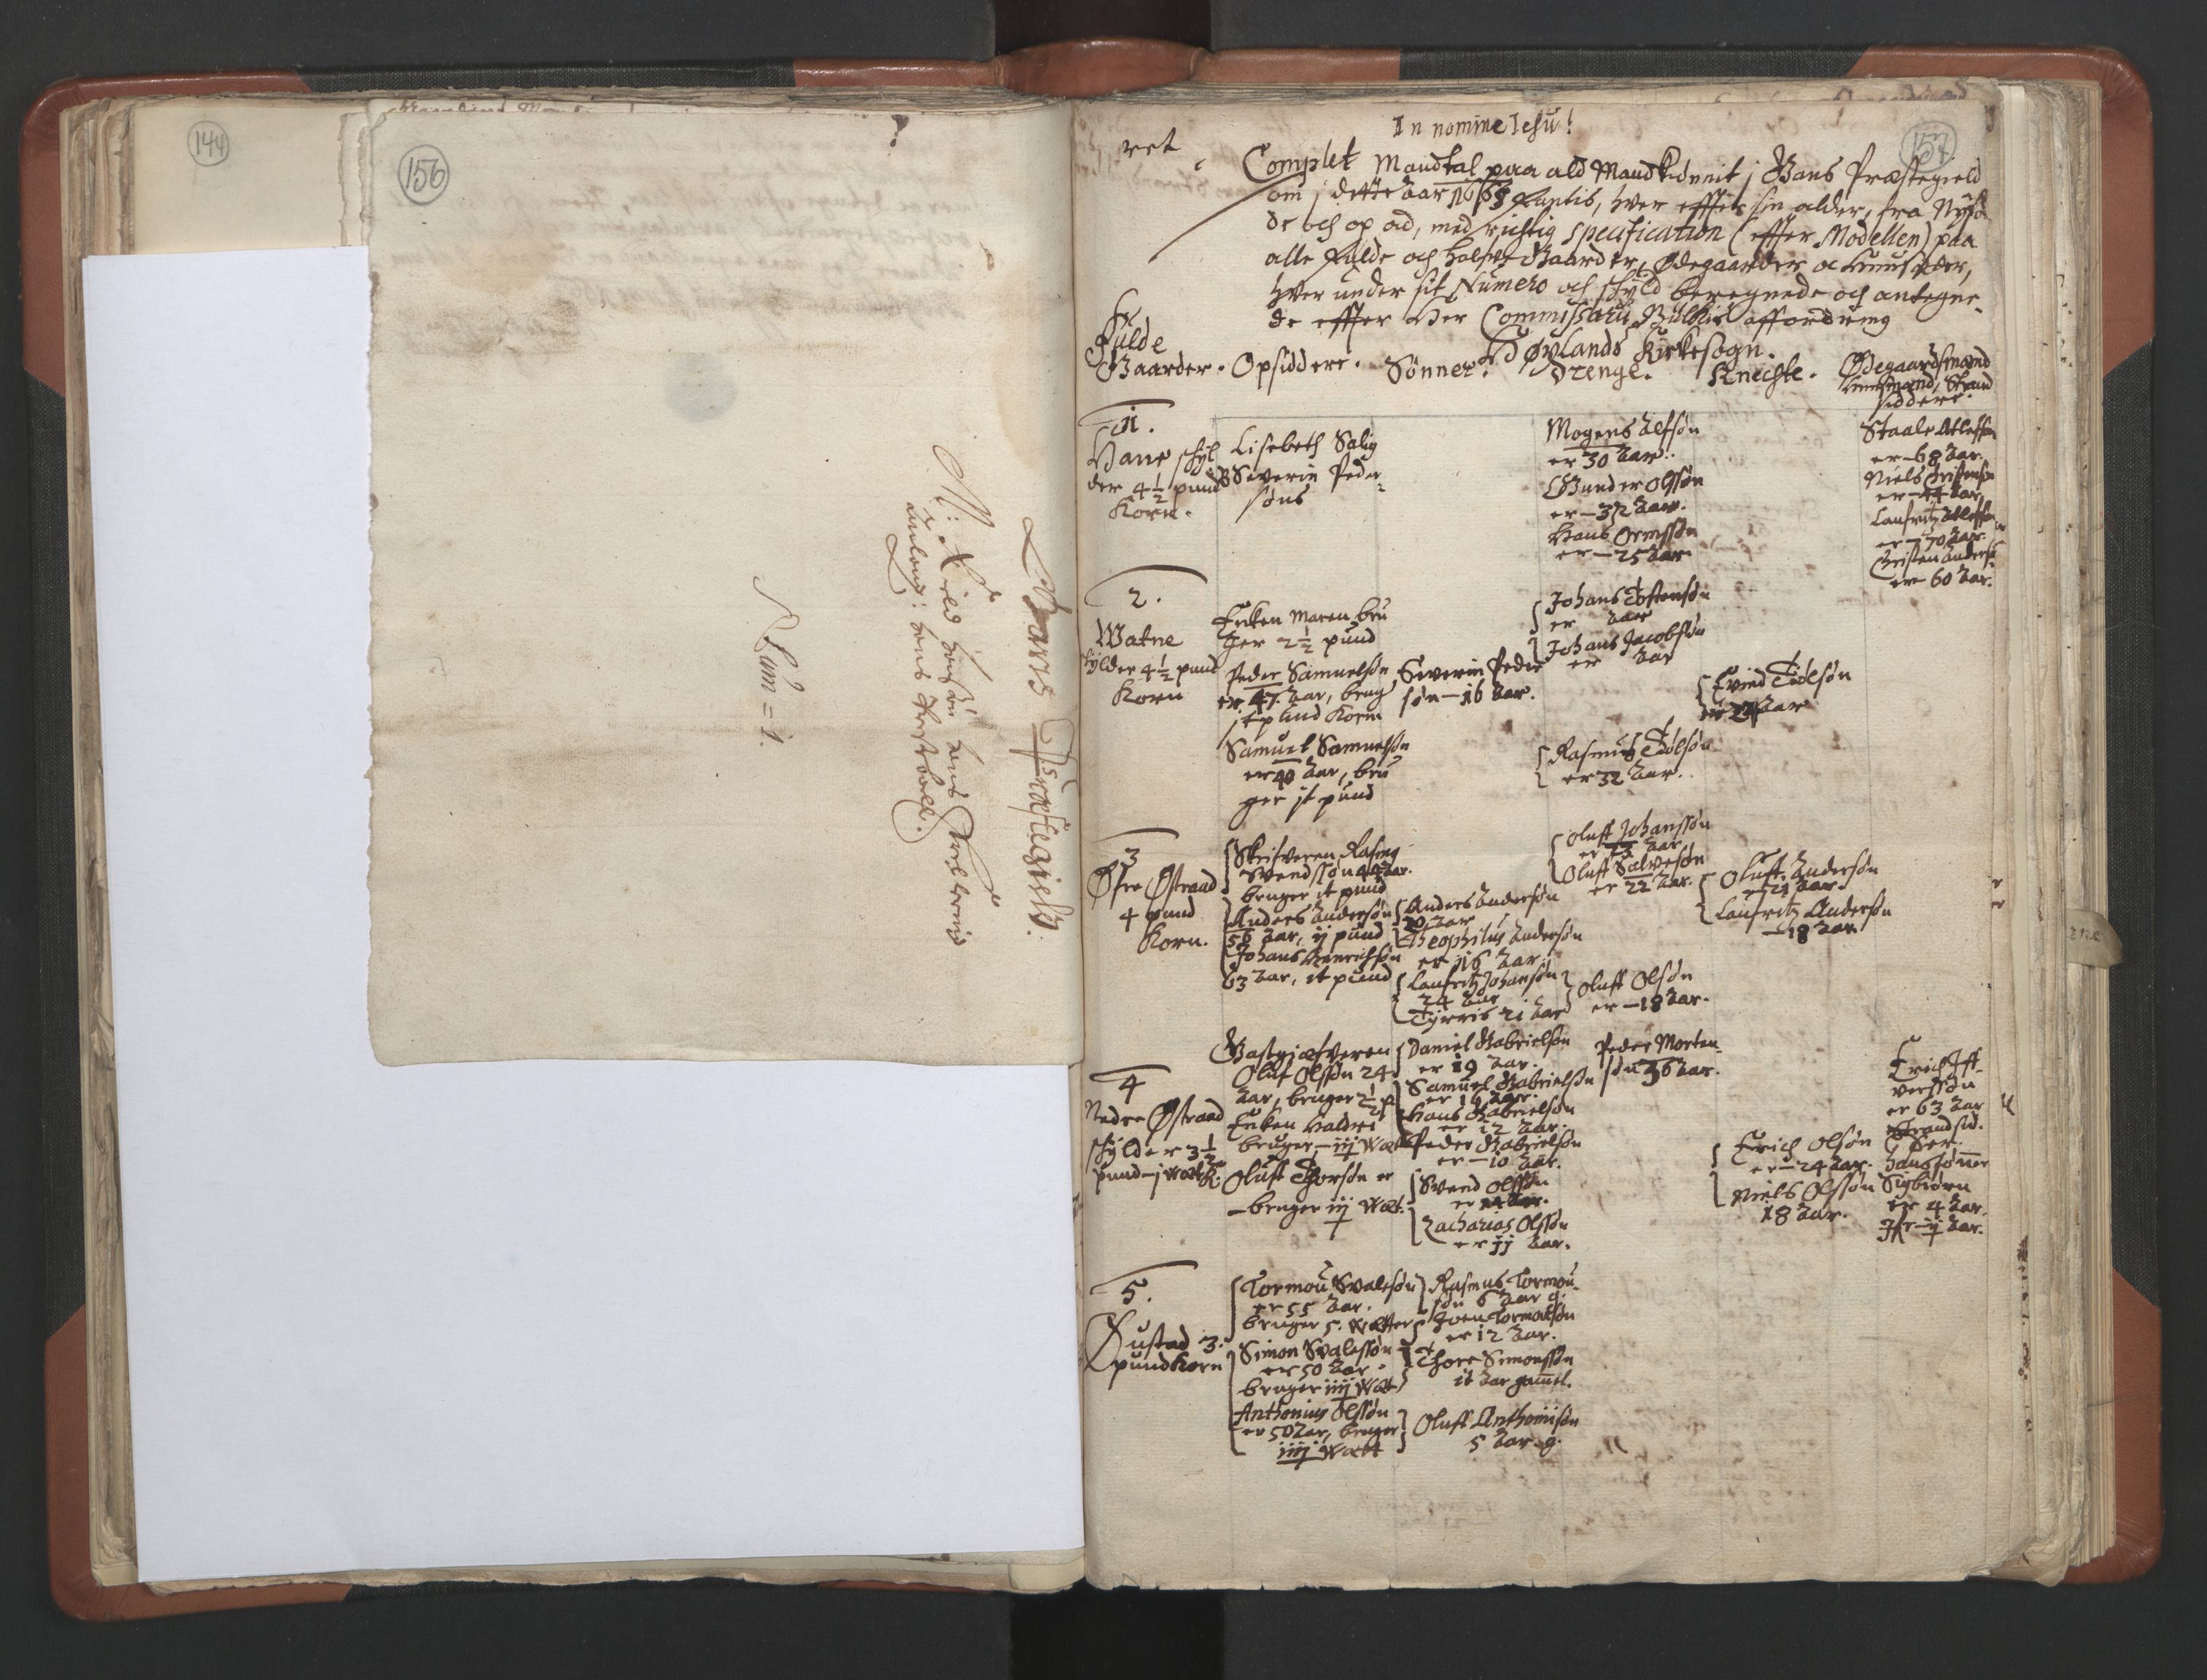 144
156
Vans Præstegield.
Num = 1.
157
In nomine Jesu!
Complet Mandtal paa ald Mandkiønnit i Vans Præstegield
om i dette Aar 1665 fantis, hver effter sin alder, fra Nyfød
de och op ad, med richtig specification (effter Modellen) paa
alle Fulde och halfve Gaarder, Ødegaarder oc Huusæder,
hver under sit Numero och skyld beregnede och antegne-
de effter Her Commissarii affordring
Ved Øylands Kirkesogn.
Fulde
Gaarder. Opsiddere. Sønner. Drenge. Knechte. Ødegaardsmænd
Huusmænd, Strand
siddere.
1.
Hane skyl
der 4 1/2 pund
Korn.
Lisebeth Salig
Severin Peder-
søns
Mogens Alfsøn
er 30 Aar.
Gunder Olssøn
er - 32 Aar.
Hans Ormssøn
er - 25 Aar
Staale Atlessøn
er - 68 Aar.
Niels Christensøn
er - 44 Aar
Laufritz Atlessøn
er - 70 Aar.
Christen Anderss:
er 60 Aar.
2.
Watne
skylder 4 1/2 pund
Korn
Enken Maren bru
ger 2 1/2 pund
Peder Samuelsøn
er 47 Aar, brug
it pund Korn
Samuel Samuelsøn
er 40 Aar, bru
ger it pund
Severin Peder
søn - 16 Aar.
Johans Tostensøn
er Aar
Johans Jacobsøn
er Aar
Rasmus Tiølsøn
er 32 Aar.
Evind Tiølsøn
Aar
3
Øfre Østraad
4 pund
Korn.
Skrifveren Rasmg
Svendssøn 44 Aar.
bruger it pund
Anders Andersøn
56 Aar, ij pund
Johans Henrichsøn
63 Aar, it pund
Anders Andersøn
20 Aar
Theophilus Andersøn
er 16 Aar.
Laufritz Johansøn
24 Aar
Tyrris 21 Aar
Oluff Johanssøn
er Aar
Oluff Salvesøn
er 22 Aar.
Oluff Olsøn
er - 18 Aar.
Oluff Andersøn
21 Aar.
Laufritz Andersøn
- 18 Aar.
4
Nedre Østraad
skylder 3 1/2
pund - j wætt K:
Gastgiæfveren
Oluf Olssøn 24
Aar, bruger 2 1/2 p
Enken Valdri
bruger - iij Wæt
Oluff Thorsøn er
- bruger iij Wæt.
Daniel Gabrielsøn
er 19 Aar.
Samuel Gabrielsøn
er 16 Aar.
Hans Gabrielsøn
er 12 Aar.
Peder Gabrielsøn
er - 10 Aar.
Svend Olssøn
er 14 Aar.
Zacharias Olssøn
er jj Aar.
Peder Morten-
søn 36 Aar.
Erich Olsøn
er - 24 Aar.
Niels Olssøn
18 Aar.
Erich Iff-
verssøn
er 63 Aar
Strandsid.
der.
hans sønner
Sigbiørn
er 4 Aar.
If - ij Aar.
5.
Hustad 3.
pund Korn
Tormou Svalesøn
er 55 Aar.
bruger 5. Wætter
Simon Svalessøn
er 50 Aar.
bruger iiij Wæt
Anthonius Olssøn
er 50 Aar, bruger
iiij Wætt
Rasmus Tormou-
søn 6 Aar g.
Joen Tormodsøn
er 12 Aar.
Thore Simonssøn
it Aar gamel.
Oluff Anthonisøn
5 Aar g.